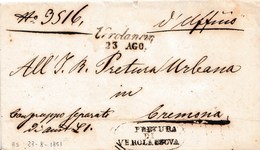 N.° 3516.
d'Ufficio
Verolanuova
23 AGO.
All' I. R. Pretura Urbana
in
Cremona
Con gruppo separato
PRETURA
DI
VEROLANUOVA